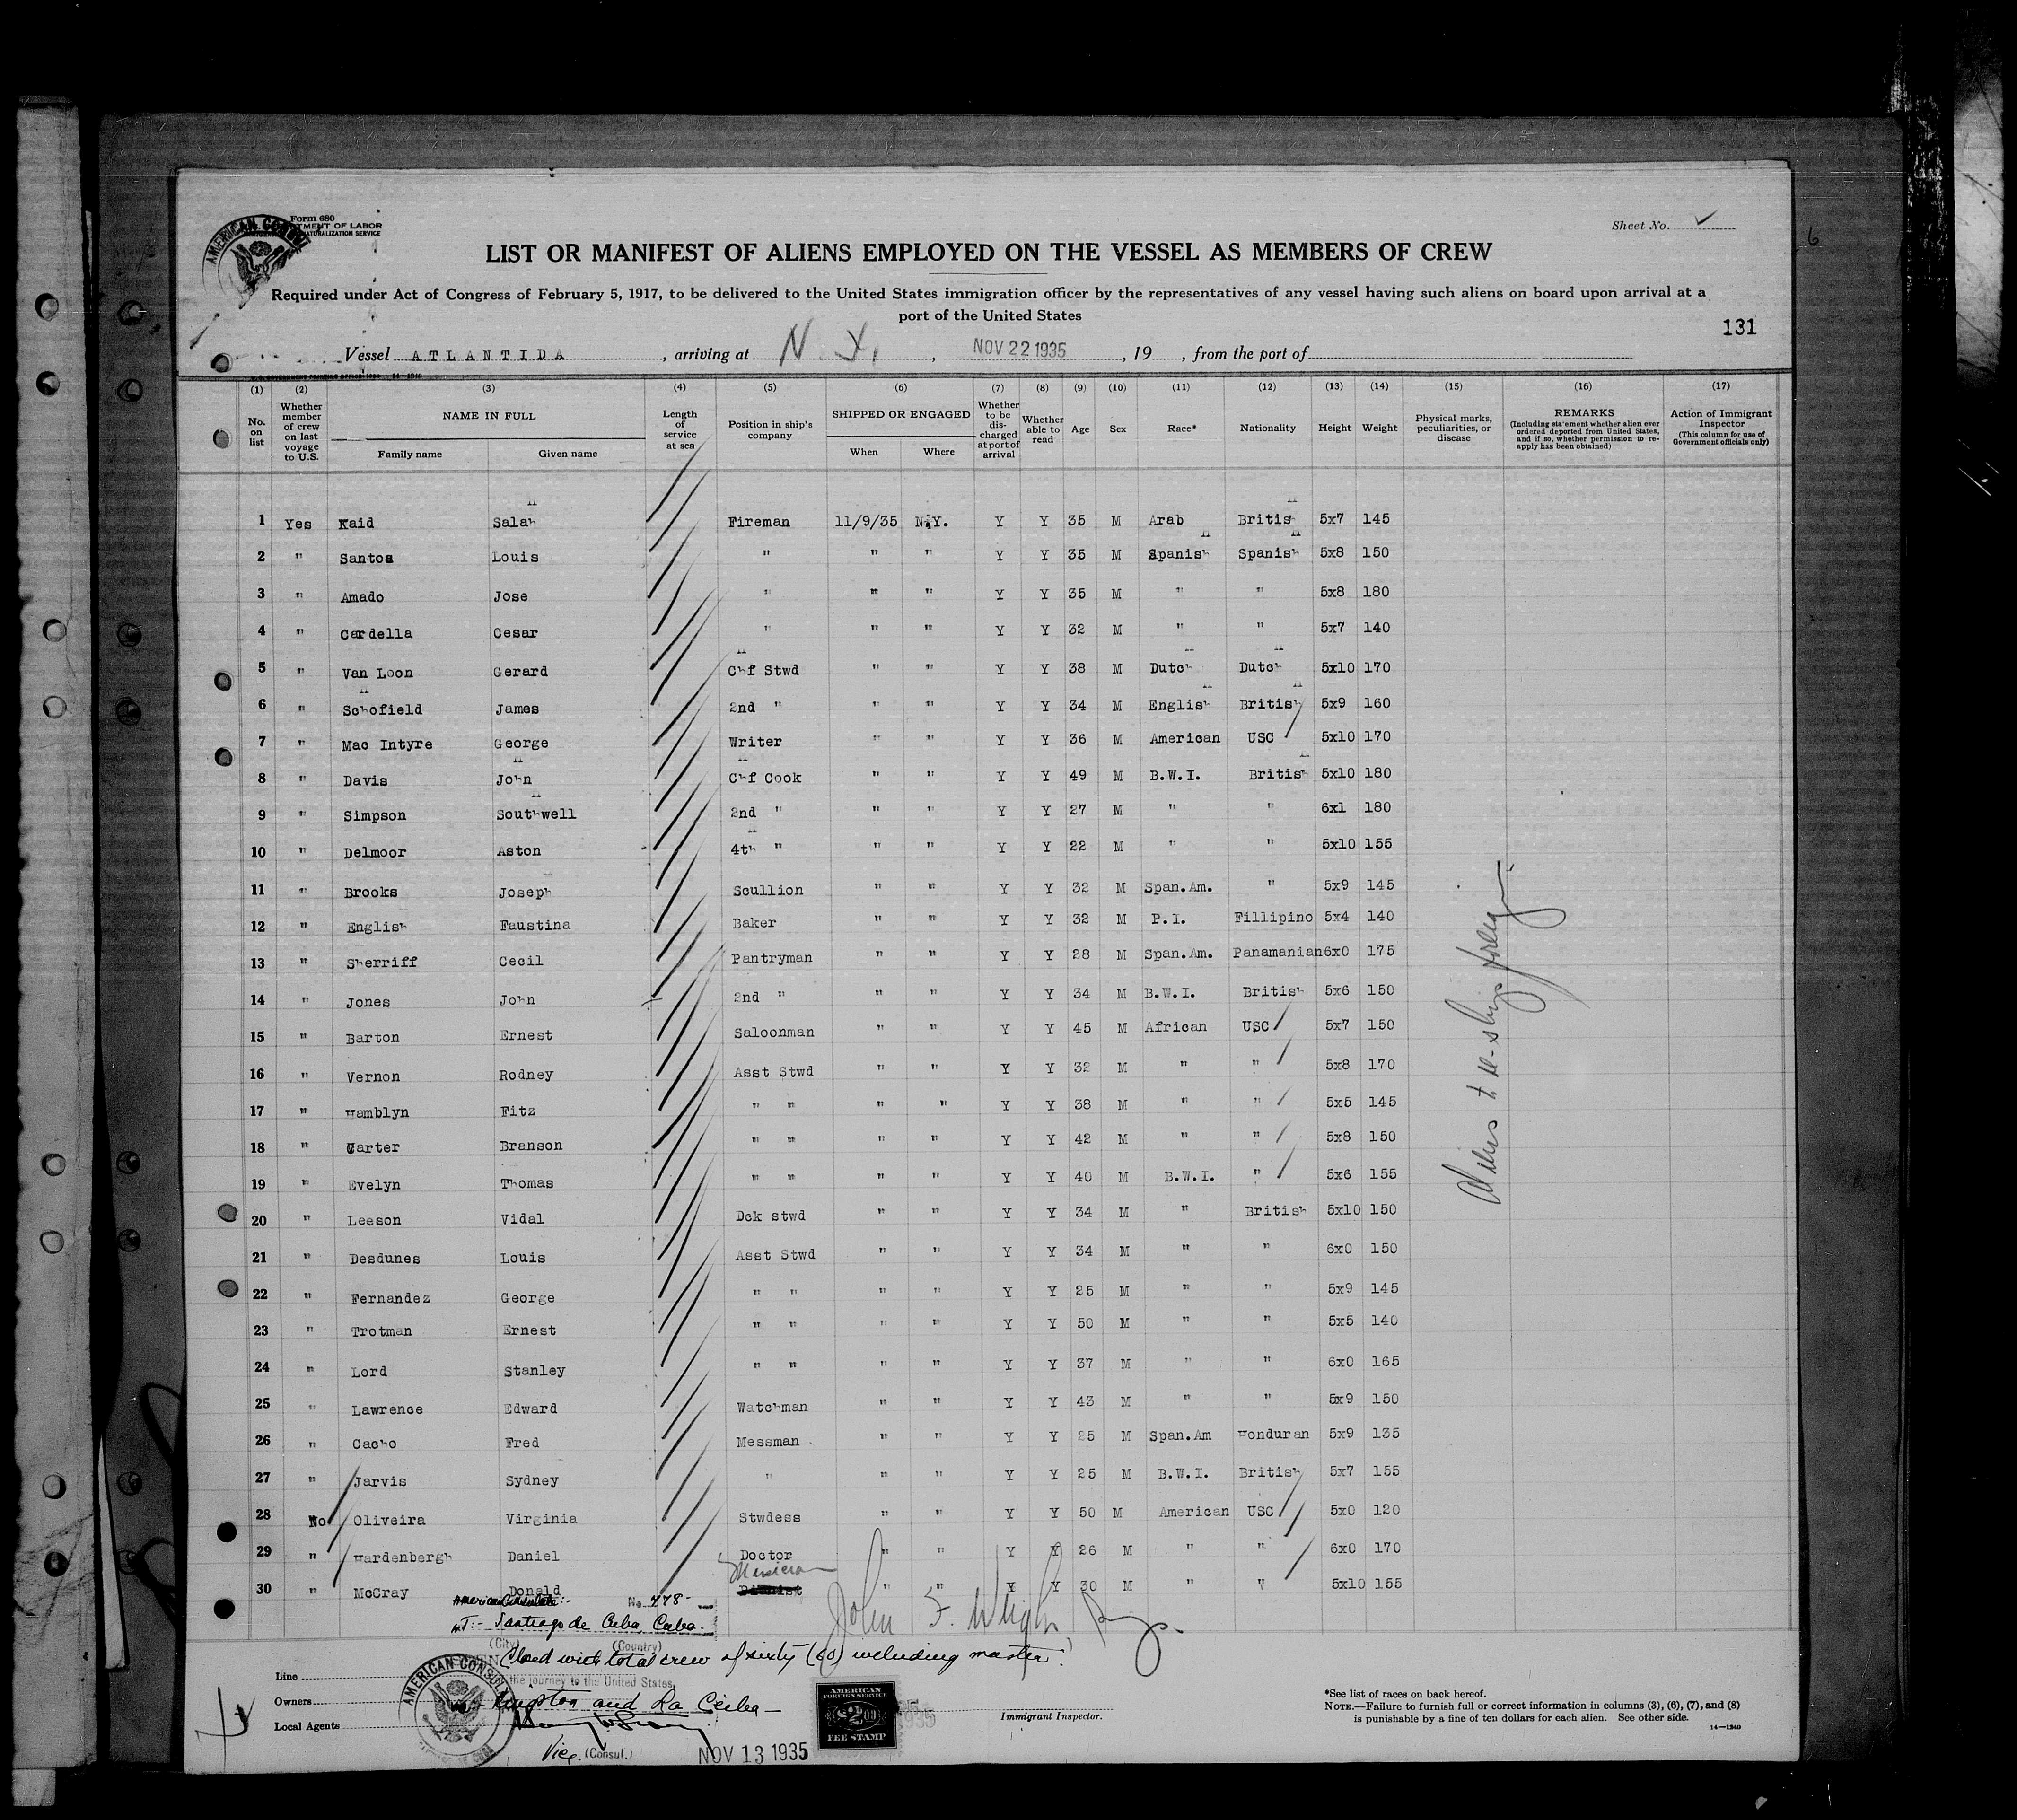 Form 680
TMENT OF LABOR
NATURALIZATION SERVICE
AMERICAN CONSUL
Sheet No. ✓
6
LIST OR MANIFEST OF ALIENS EMPLOYED ON THE VESSEL AS MEMBERS OF CREW
Required under Act of Congress of February 5, 1917, to be delivered to the United States immigration officer by the representatives of any vessel having such aliens on board upon arrival at a
port of the United States
131
Vessel ATLANTIDA , arriving at N. Y. , NOV 22 1935 , 19 , from the port of
(1) (2) (3) (4) (5) (6) (7) (8) (9) (10) (11) (12) (13) (14) (15) (16) (17)
No. on list Whether member of crew on last voyage to U.S. NAME IN FULL Family name Given name Length of service at sea Position in ship's company SHIPPED OR ENGAGED When Where Whether to be discharged at port of arrival Whether able to read Age Sex Race* Nationality Height Weight Physical marks, peculiarities, or disease REMARKS (Including statement whether alien ever ordered deported from United States, and if so, whether permission to re-apply has been obtained) Action of Immigrant Inspector (This column for use of Government officials only)
1 Yes Kaid Salah Fireman 11/9/35 N.Y. Y Y 35 M Arab British 5x7 145
2 " Santos Louis " " " Y Y 35 M Spanish Spanish 5x8 150
3 " Amado Jose " " " Y Y 35 M " " 5x8 180
4 " Cardella Cesar " " " Y Y 32 M " " 5x7 140
5 " Van Loon Gerard Chf Stwd " " Y Y 38 M Dutch Dutch 5x10 170
6 " Schofield James 2nd " " " Y Y 34 M English British 5x9 160
7 " Mac Intyre George Writer " " Y Y 36 M American USC 5x10 170
8 " Davis John Chf Cook " " Y Y 49 M B.W.I. British 5x10 180
9 " Simpson Southwell 2nd " " " Y Y 27 M " " 6x1 180
10 " Delmoor Aston 4th " " " Y Y 22 M " " 5x10 155
11 " Brooks Joseph Scullion " " Y Y 32 M Span.Am. " 5x9 145
12 " English Faustina Baker " " Y Y 32 M P.I. Fillipino 5x4 140
13 " Sherriff Cecil Pantryman " " Y Y 28 M Span.Am. Panamanian 6x0 175
14 " Jones John 2nd " " " Y Y 34 M B.W.I. British 5x6 150
15 " Barton Ernest Saloonman " " Y Y 45 M African USC 5x7 150
16 " Vernon Rodney Asst Stwd " " Y Y 32 M " " 5x8 170
17 " Hamblyn Fitz " " " " Y Y 38 M " " 5x5 145
18 " Carter Branson " " " " Y Y 42 M " " 5x8 150
19 " Evelyn Thomas " " " " Y Y 40 M B.W.I. " 5x6 155
20 " Leeson Vidal Dck stwd " " Y Y 34 M " British 5x10 150
21 " Desdunes Louis Asst Stwd " " Y Y 34 M " " 6x0 150
22 " Fernandez George " " " " Y Y 25 M " " 5x9 145
23 " Trotman Ernest " " " " Y Y 50 M " " 5x5 140
24 " Lord Stanley " " " " Y Y 37 M " " 6x0 165
25 " Lawrence Edward Watchman " " Y Y 43 M " " 5x9 150
26 " Cacho Fred Messman " " Y Y 25 M Span.Am Honduran 5x9 135
27 " Jarvis Sydney " " " Y Y 25 M B.W.I. British 5x7 155
28 No Oliveira Virginia Stwdess " " Y Y 50 M American USC 5x0 120
29 " Hardenbergh Daniel Doctor " " Y Y 26 M " " 6x0 170
30 " McCray Donald Musician Pianist " " Y Y 30 M " " 5x10 155
Aliens to re-ship foreign
American Consulate:- No. 478-
AT:- Santiago de Cuba, Cuba.
(City) (Country)
John F. Wright
Closed with total crew of sixty (60) including master.
Line
the journey to the United States
Owners
Kingston and La Ceiba —
Local Agents
AMERICAN CONSULA
Vice (Consul.)
NOV 13 1935
AMERICAN FOREIGN SERVICE $2.00 FEE STAMP
Immigrant Inspector.
*See list of races on back hereof.
NOTE.—Failure to furnish full or correct information in columns (3), (6), (7), and (8)
is punishable by a fine of ten dollars for each alien. See other side.
14—1240